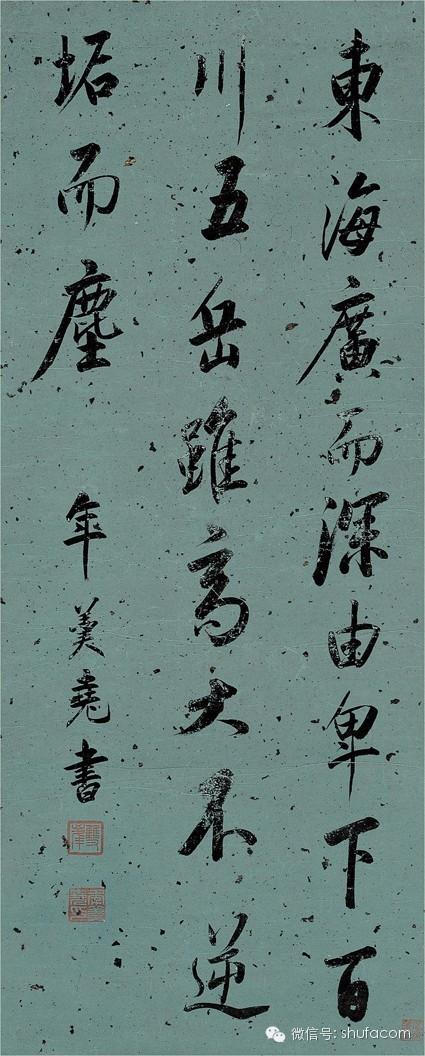 東海廣而深由卑下百
川五岳雖高大不逆
垢而塵
年羹堯書
微信号: shufacom